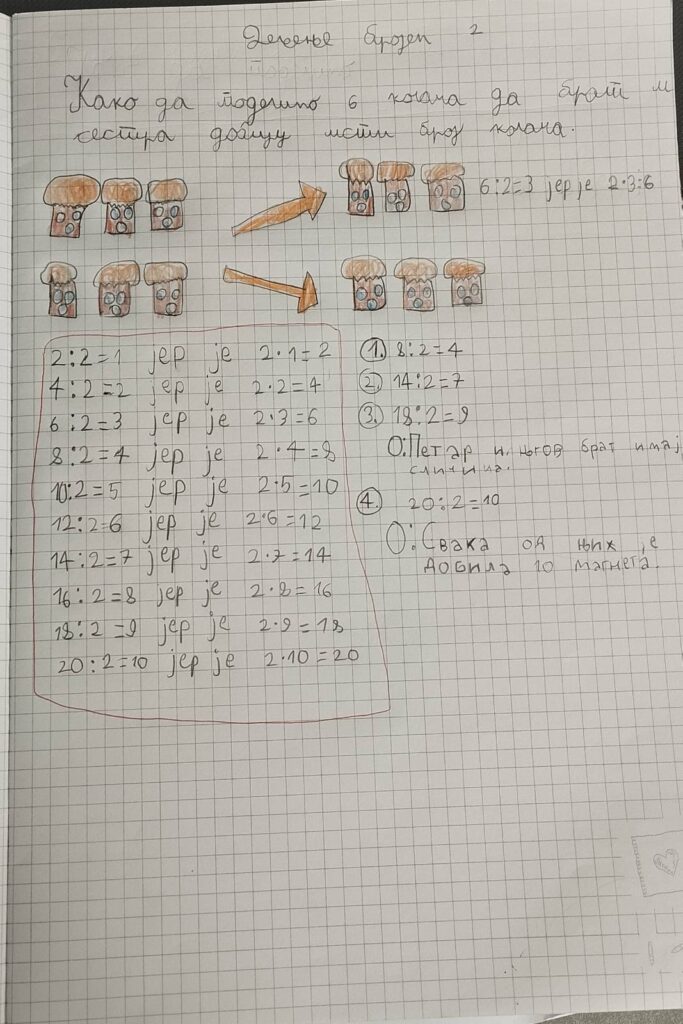 Дељење бројем 2
Како да поделимо 6 колача да брат и
сестра добију исти број колача.
6:2=3 јер је 2·3=6
2:2=1 јер је 2·1=2
4:2=2 јер је 2·2=4
6:2=3 јер је 2·3=6
8:2=4 јер је 2·4=8
10:2=5 јер је 2·5=10
12:2=6 јер је 2·6=12
14:2=7 јер је 2·7=14
16:2=8 јер је 2·8=16
18:2=9 јер је 2·9=18
20:2=10 јер је 2·10=20
1. 8:2=4
2. 14:2=7
3. 18:2=9
О: Петар и његов брат имај
4. 20:2=10
О: Свака од њих је
добила 10 магнета.